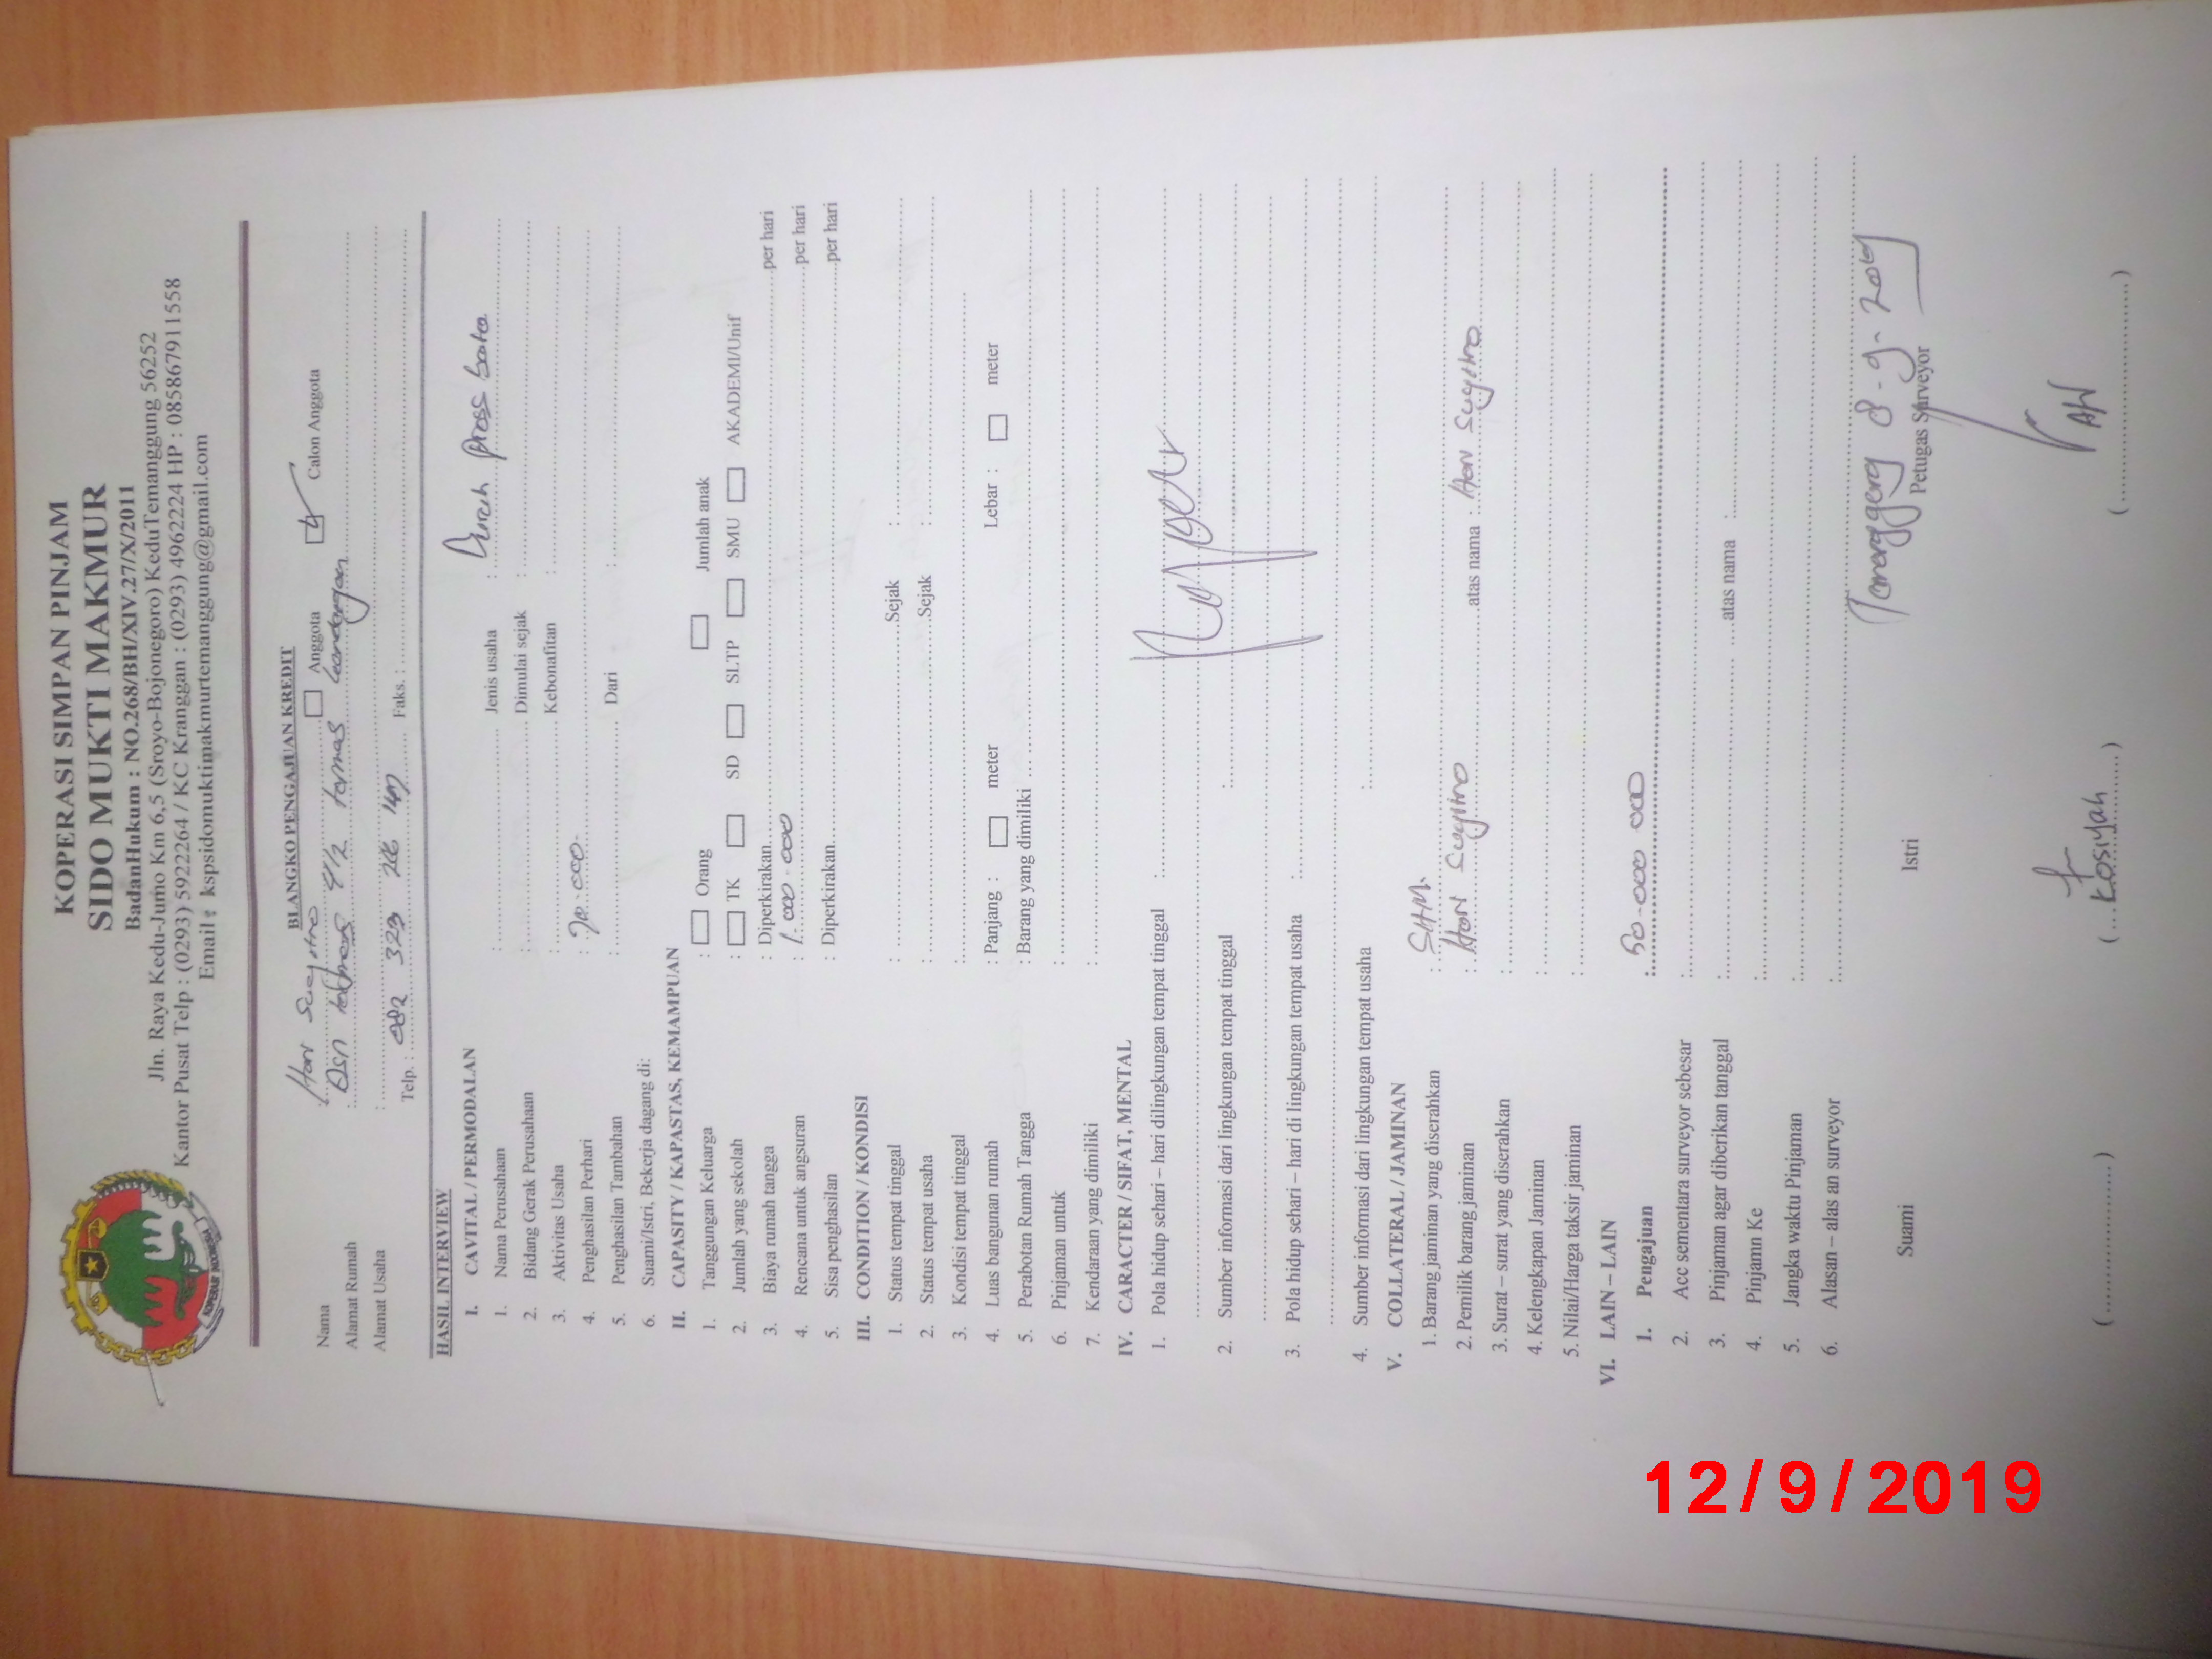 KOPERASI SIMPAN PINJAM
SIDO MUKTI MAKMUR
BadanHukum : NO.268/BH/XIV.27/X/2011
Jln. Raya Kedu-Jumo Km 6,5 (Sroyo-Bojonegoro) KeduTemanggung 56252
Kantor Pusat Telp : (0293) 5922264 / KC Kranggan : (0293) 4962224 HP : 085867911558
Email : kspsidomuktimakmurtemanggung@gmail.com
KOPERASI INDONESIA
BLANGKO PENGAJUAN KREDIT
Nama : Hari Sugitro Anggota Calon Anggota
Alamat Rumah : Dsn 4/2
Alamat Usaha :
Telp. : 082 323 Faks. :
HASIL INTERVIEW
I. CAVITAL / PERMODALAN
1. Nama Perusahaan : Jenis usaha : press bata
2. Bidang Gerak Perusahaan : Dimulai sejak :
3. Aktivitas Usaha : Kebonafitan :
4. Penghasilan Perhari :
5. Penghasilan Tambahan : Dari :
6. Suami/Istri, Bekerja dagang di:
II. CAPASITY / KAPASTAS, KEMAMPUAN
1. Tanggungan Keluarga : Orang Jumlah anak
2. Jumlah yang sekolah : TK SD SLTP SMU AKADEMI/Unif
3. Biaya rumah tangga : Diperkirakan per hari
4. Rencana untuk angsuran : 1.000.000 per hari
5. Sisa penghasilan : Diperkirakan per hari
III. CONDITION / KONDISI
1. Status tempat tinggal : Sejak :
2. Status tempat usaha : Sejak :
3. Kondisi tempat tinggal :
4. Luas bangunan rumah : Panjang : meter Lebar : meter
5. Perabotan Rumah Tangga : Barang yang dimiliki
6. Pinjaman untuk :
7. Kendaraan yang dimiliki :
IV. CARACTER / SIFAT, MENTAL
1. Pola hidup sehari – hari dilingkungan tempat tinggal :
2. Sumber informasi dari lingkungan tempat tinggal :
3. Pola hidup sehari – hari di lingkungan tempat usaha :
4. Sumber informasi dari lingkungan tempat usaha :
V. COLLATERAL / JAMINAN
1. Barang jaminan yang diserahkan : SHM.
2. Pemilik barang jaminan : Hari Sugitro atas nama : Hari Sugitro
3. Surat – surat yang diserahkan :
4. Kelengkapan Jaminan :
5. Nilai/Harga taksir jaminan :
VI. LAIN – LAIN
1. Pengajuan : 50.000 000
2. Acc sementara surveyor sebesar :
3. Pinjaman agar diberikan tanggal : atas nama :
4. Pinjamn Ke :
5. Jangka waktu Pinjaman :
6. Alasan – alas an surveyor :
Suami Istri Petugas Surveyor
(..............) (Kosiyah) (..............)
12/9/2019